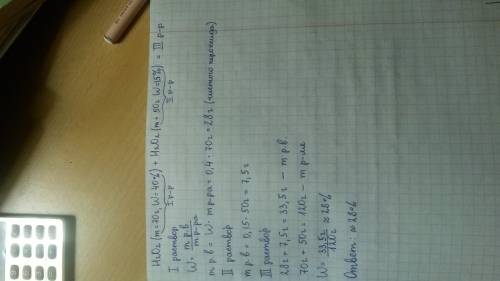 H₂O₂ (m=70г, W=40%) + H₂O₂ (m=50г (W=15%) = III р-р
I р-р II р-р
I раствор
W = m р.в / m р-ра
m р.в = W · m р.ра = 0,4 · 70г = 28г (чистого пероксида)
II раствор
m р.в = 0,15 · 50г = 7,5г
III раствор
28г + 7,5г = 33,5г – m р.в.
70г + 50г = 120г – m р-ра
W = 33,5г / 120г ≈ 28%
Ответ: ≈ 28%